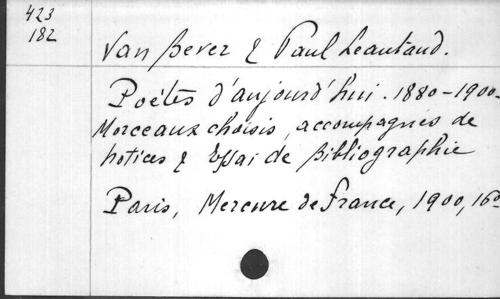 423
182
Van Bever & Paul Leautaud.
Poétes d'aujourd'hui. 1880-1900.
Morceaux choisis, accompagnés de
notices & Essai de Bibliographie
Paris, Mercure de France, 1900, 16o